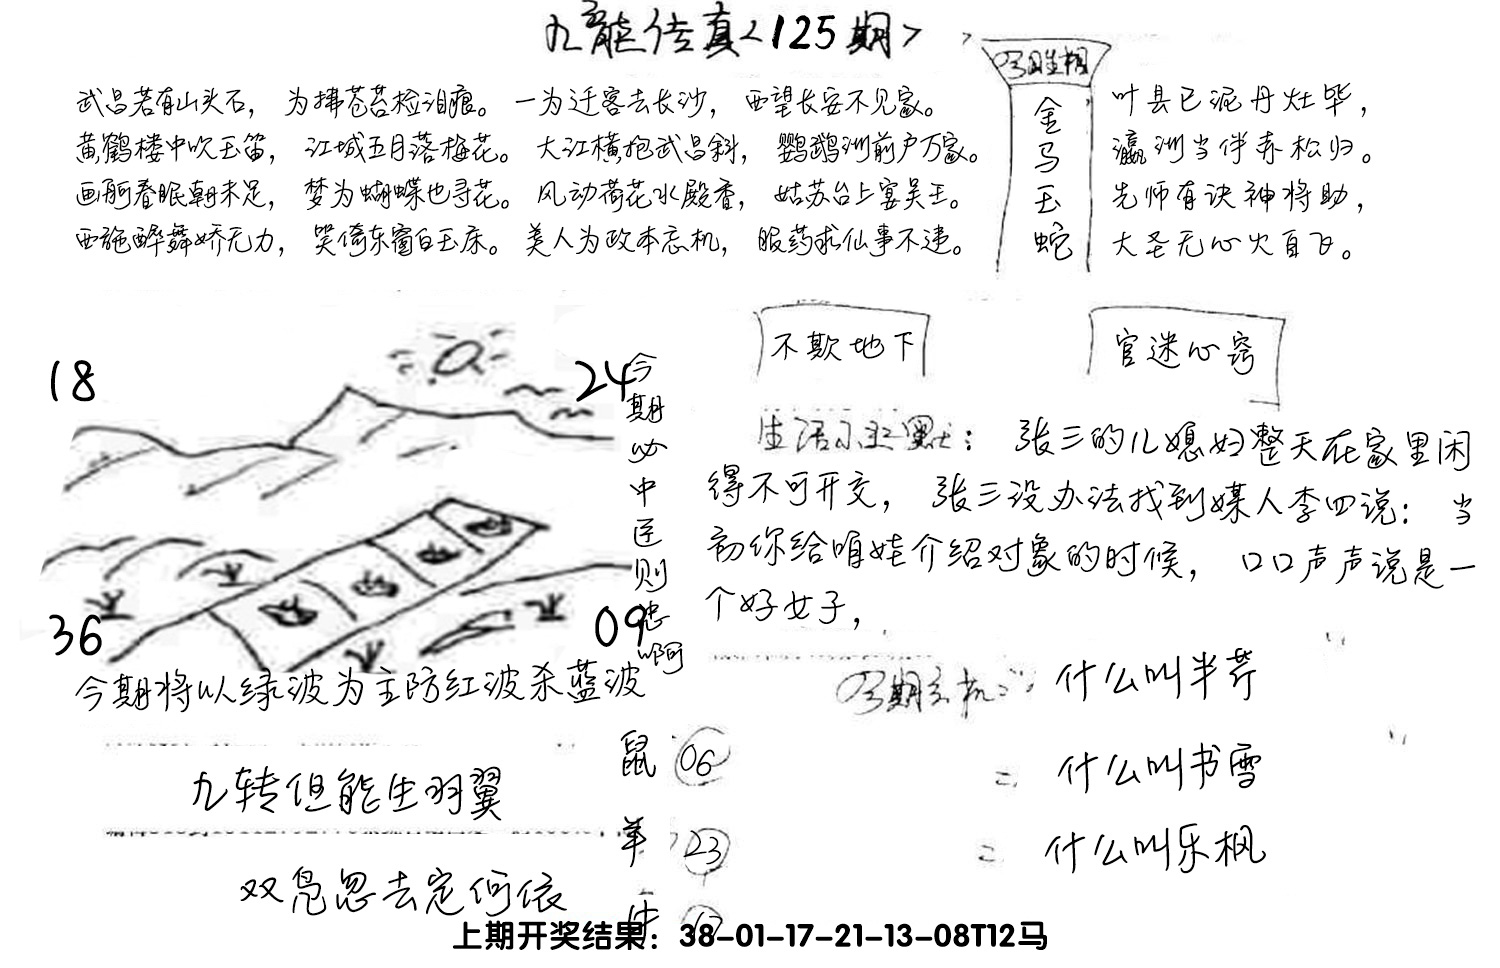 九龙传真<125期>
武昌若有山头石，为拂苍苔检泪痕。一为迁客去长沙，西望长安不见家。
黄鹤楼中吹玉笛，江城五月落梅花。大江横抱武昌斜，鹦鹉洲前户万家。
画舸春眠朝未足，梦为蝴蝶也寻花。风动荷花水殿香，姑苏台上宴吴王。
西施醉舞娇无力，笑倚东窗白玉床。美人为政本忘机，服药求仙事不违。
今日生相
金
马
玉
蛇
叶县已泥丹灶毕，
瀛洲当伴赤松归。
先师有诀神将助，
大圣无心火自飞。
不欺地下
官迷心窍
18
24
36
09
今期必中臣则忠啊
今期将以绿波为主防红波杀蓝波
生活小幽默：张三的儿媳妇整天在家里闲
得不可开交，张三没办法找到媒人李四说：当
初你给咱娃介绍对象的时候，口口声声说是一
个好女子，
今期玄机：什么叫半芹
= 什么叫书雪
= 什么叫乐枫
九转但能生羽翼
双凫忽去定何依
鼠 06
羊 23
牛
上期开奖结果：38-01-17-21-13-08T12马